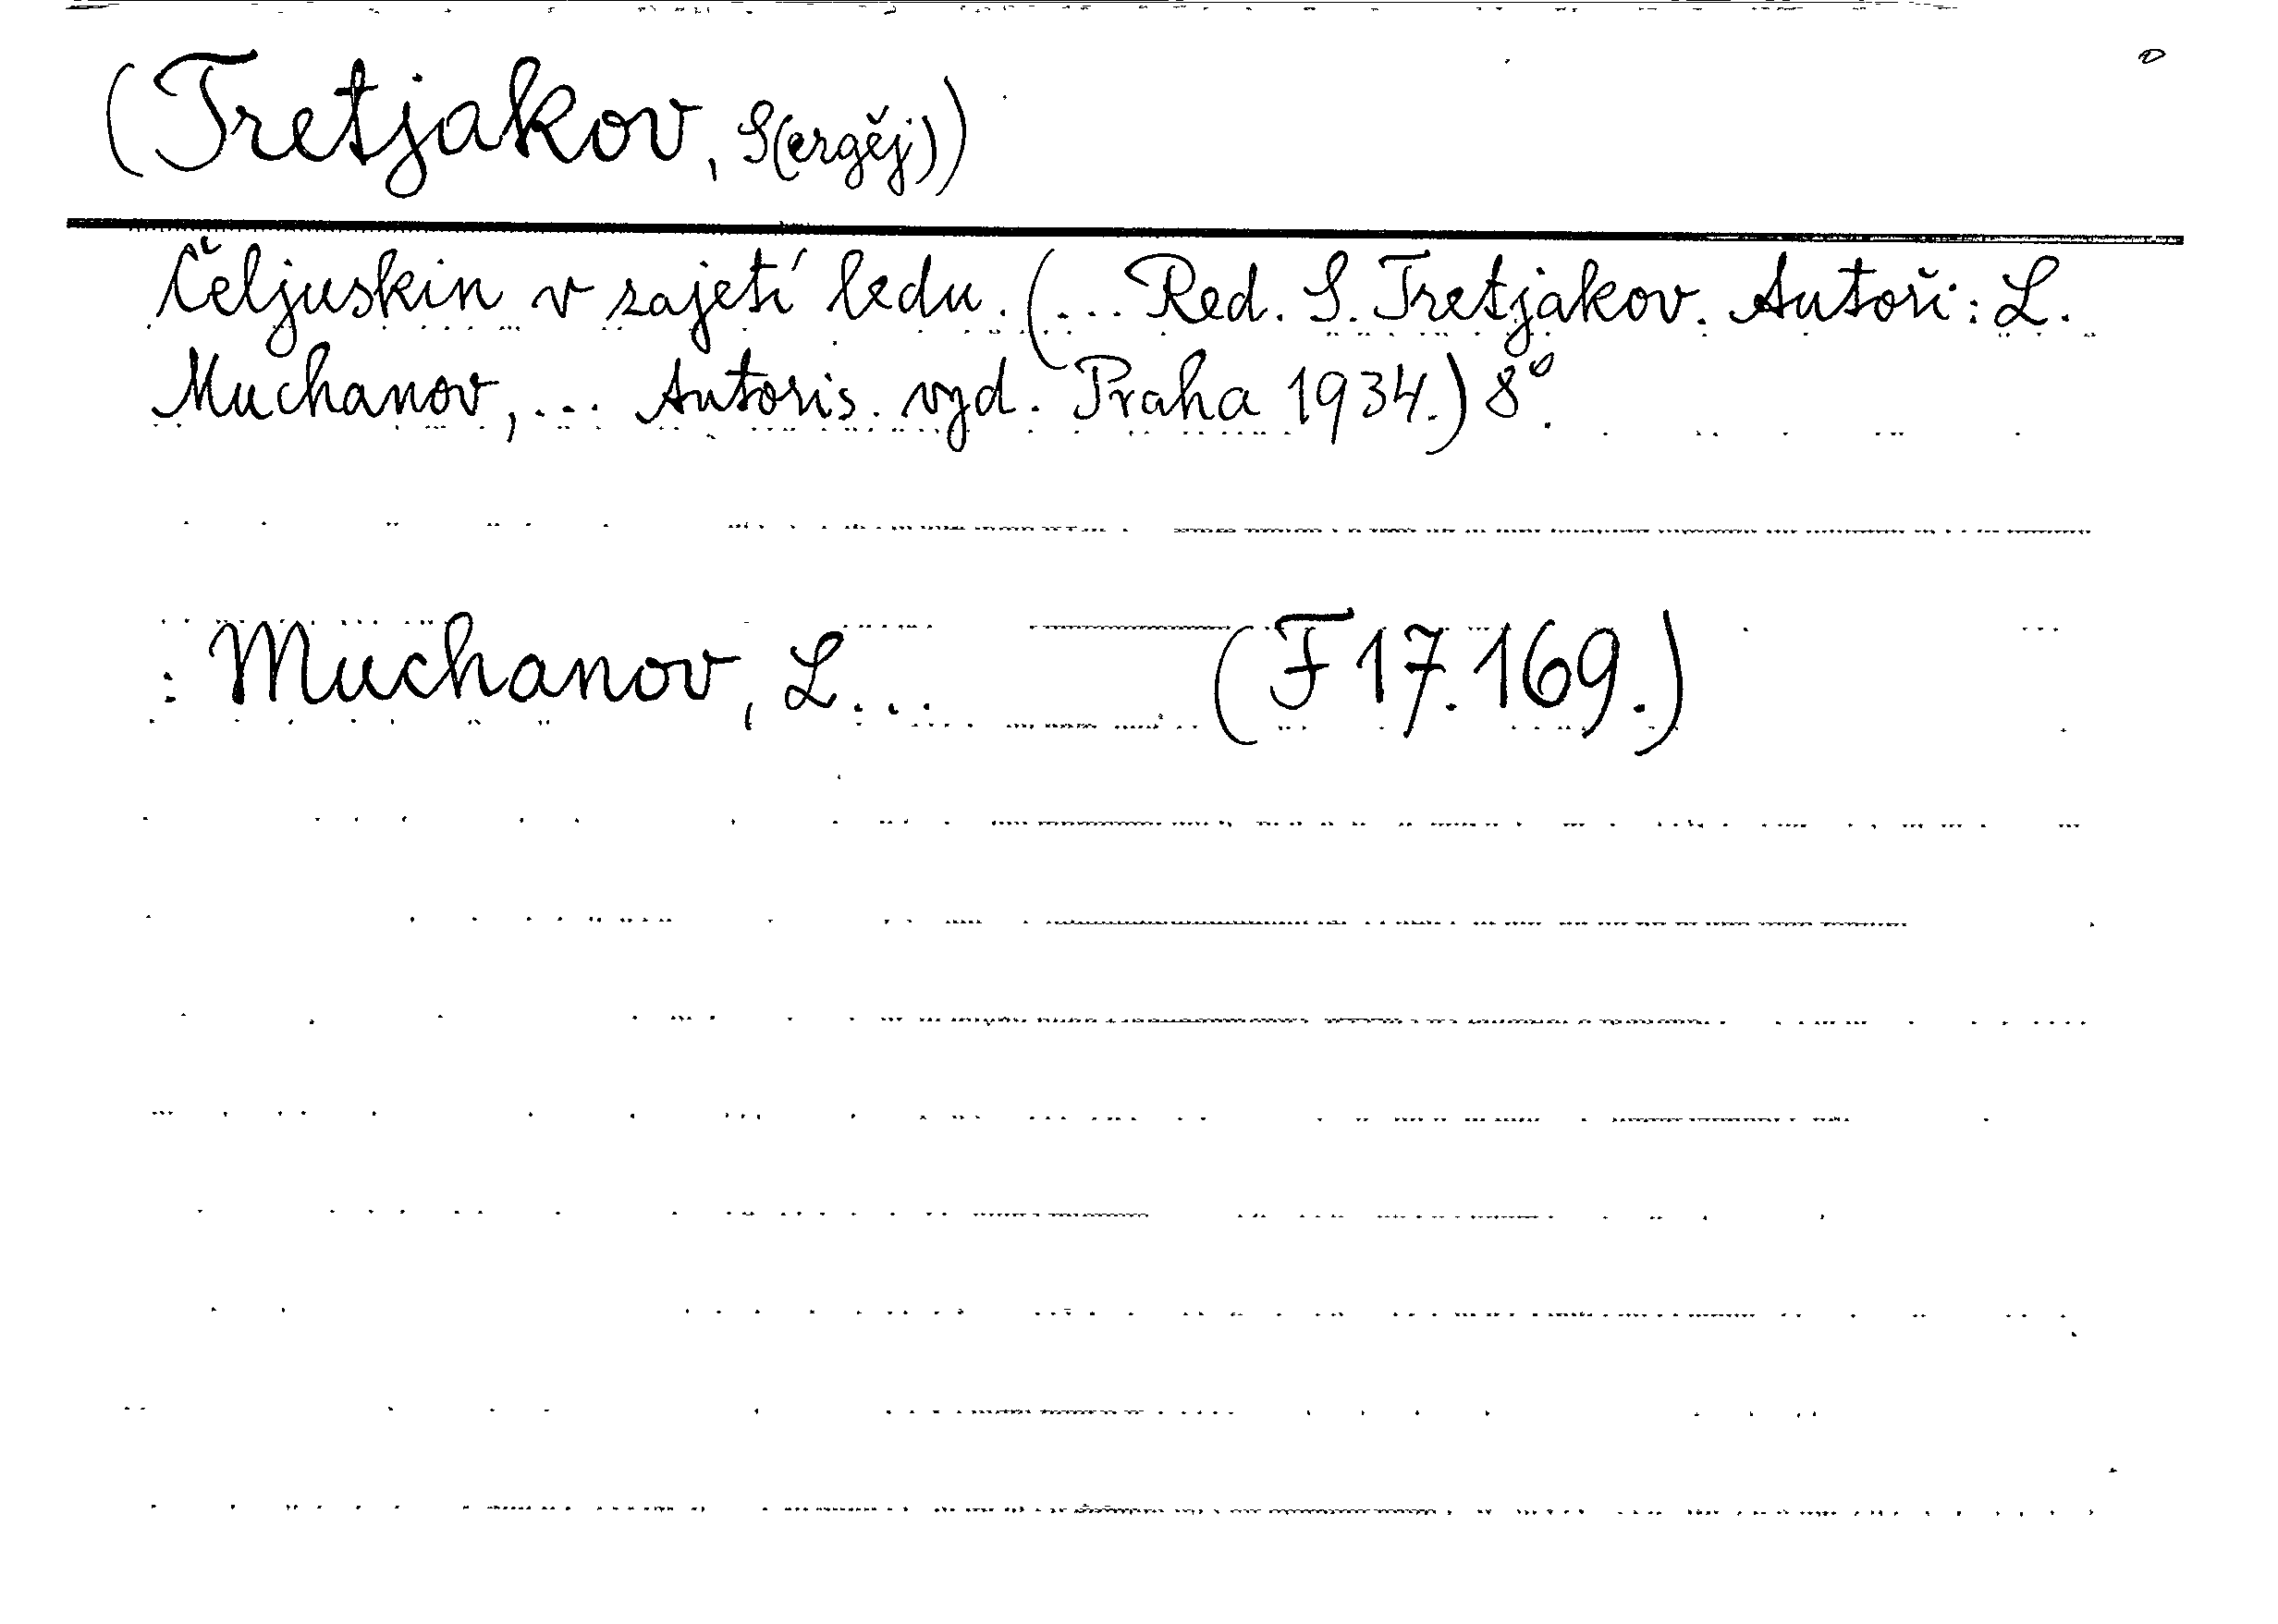 (Tretjakov, S(ergěj))
Čeljuskin v zajetí ledu. (... Red. S. Tretjakov. Autoři: L.
Muchanov, ... Autoris. vyd. Praha 1934.) 8°.
: Muchanov, L... (F 17.169.)